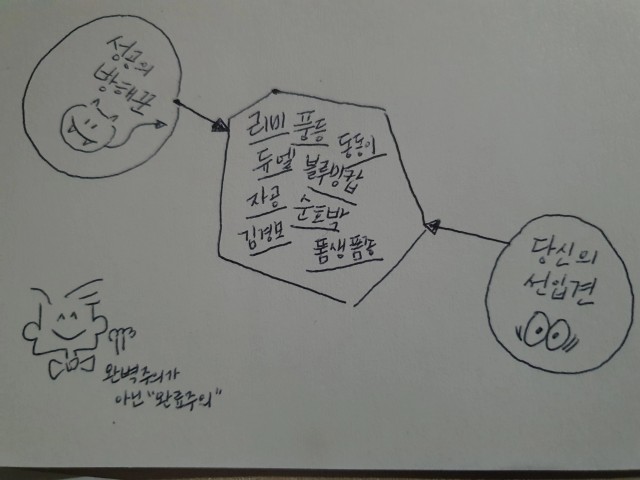 성공의
방해꾼
리비 풍등 동동이
듀엘 블루밍캅
자공 순토박
김경모 폼생폼종
당신의
선입견
완벽주의가
아닌 "완료주의"